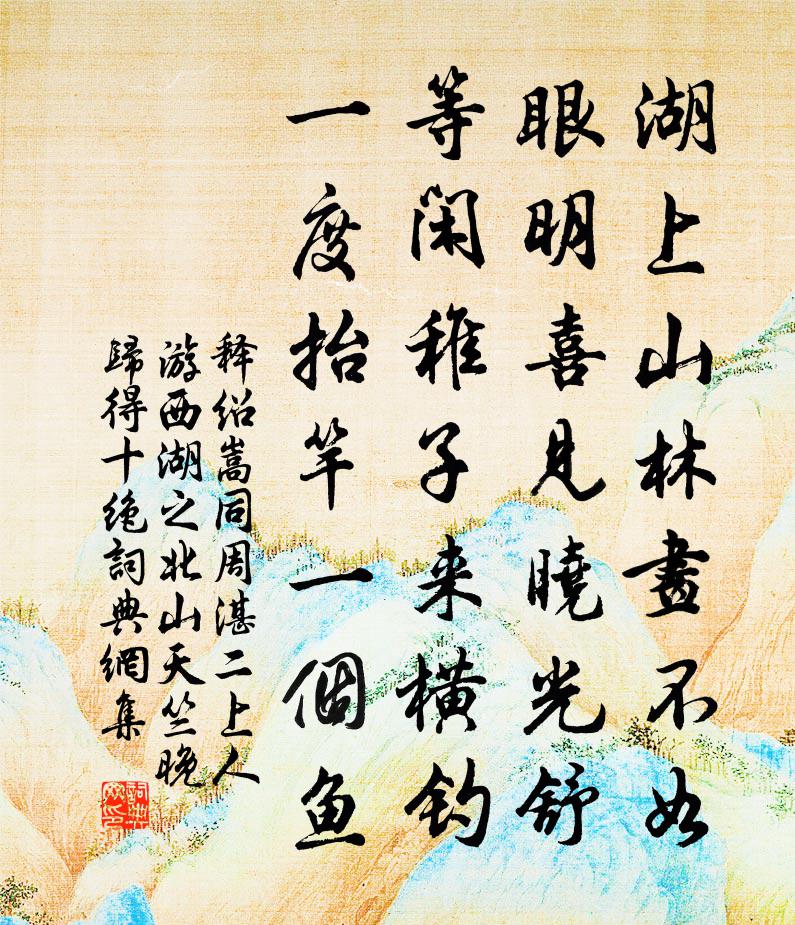 湖上山林畫不如
眼明喜見曉光舒
等闲稚子来横钓
一度抬竿一個鱼
释绍嵩同周湛二上人
游西湖之北山天竺晚
歸得十绝詞典網集